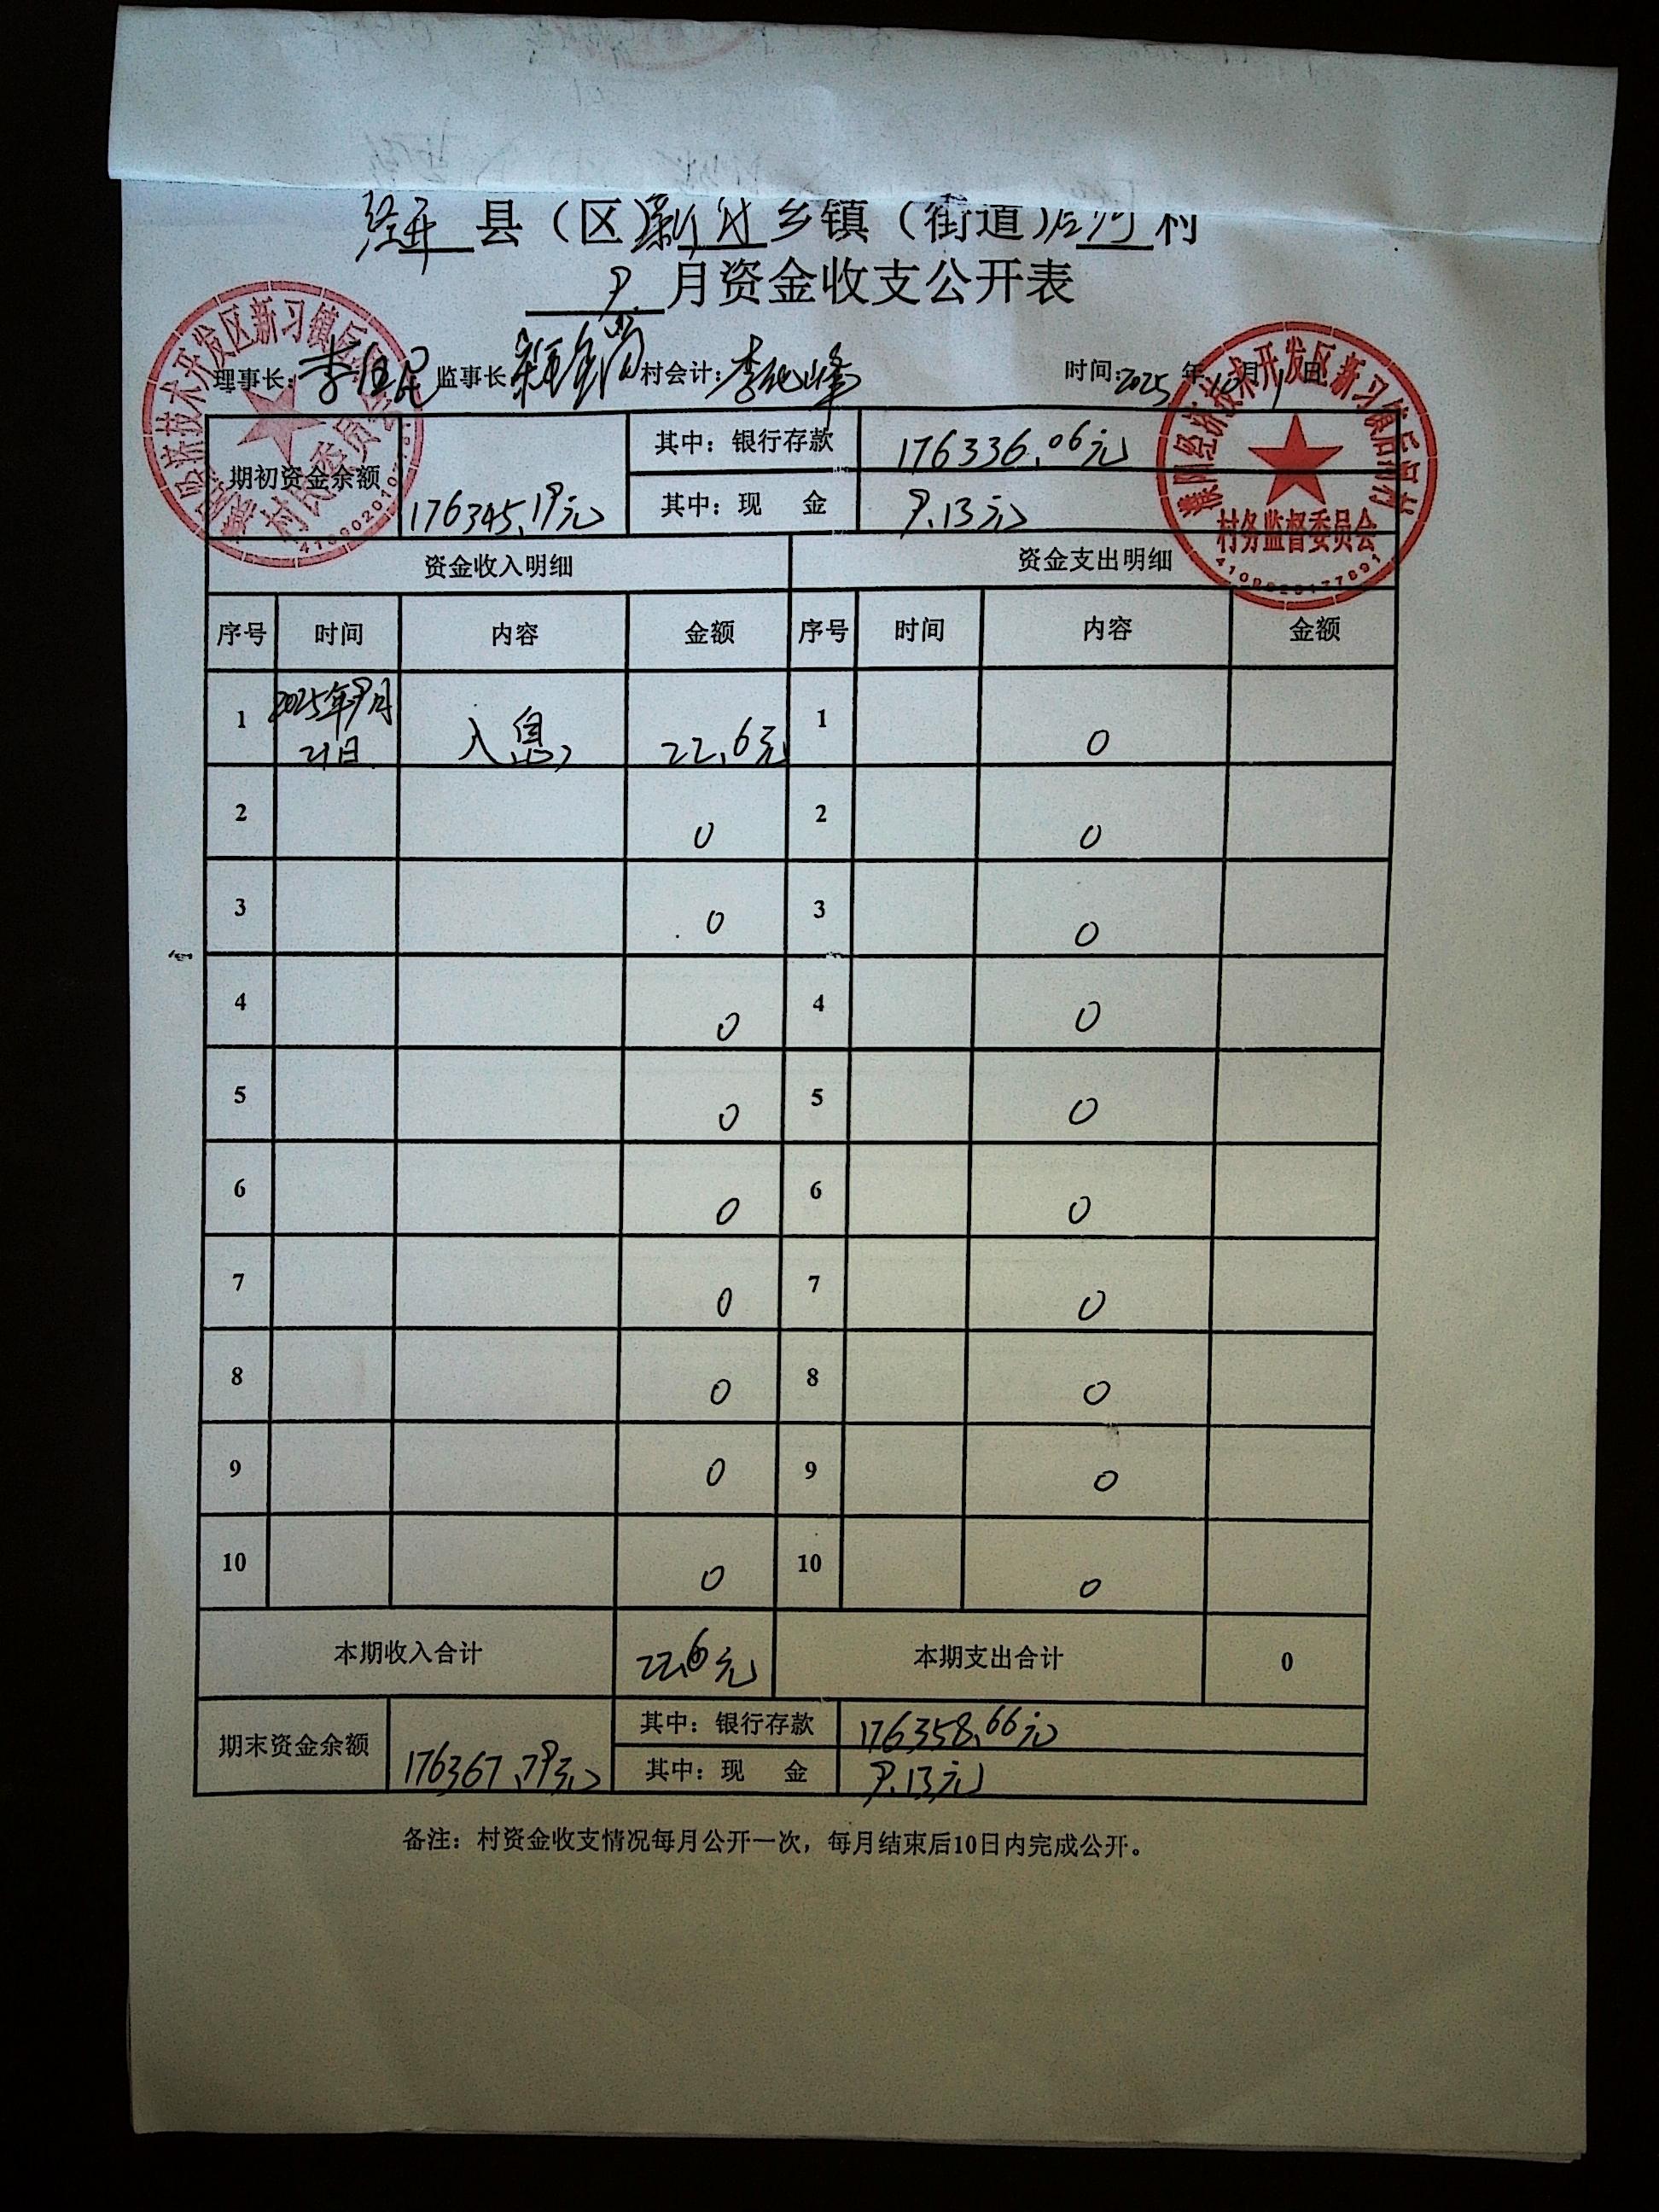 经开县（区）新习乡镇（街道）后河村
9月资金收支公开表
理事长： 监事长 村会计： 时间：2025年10月1日
期初资金余额 176345.19元 其中：银行存款 176336.06元
其中：现 金 9.13元
资金收入明细 资金支出明细
序号 时间 内容 金额 序号 时间 内容 金额
1 2025年9月21日 入息 22.6元 1 0
2 0 2 0
3 0 3 0
4 0 4 0
5 0 5 0
6 0 6 0
7 0 7 0
8 0 8 0
9 0 9 0
10 0 10 0
本期收入合计 22.6元 本期支出合计 0
期末资金余额 176367.79元 其中：银行存款 176358.66元
其中：现 金 9.13元
备注：村资金收支情况每月公开一次，每月结束后10日内完成公开。
村务监督委员会